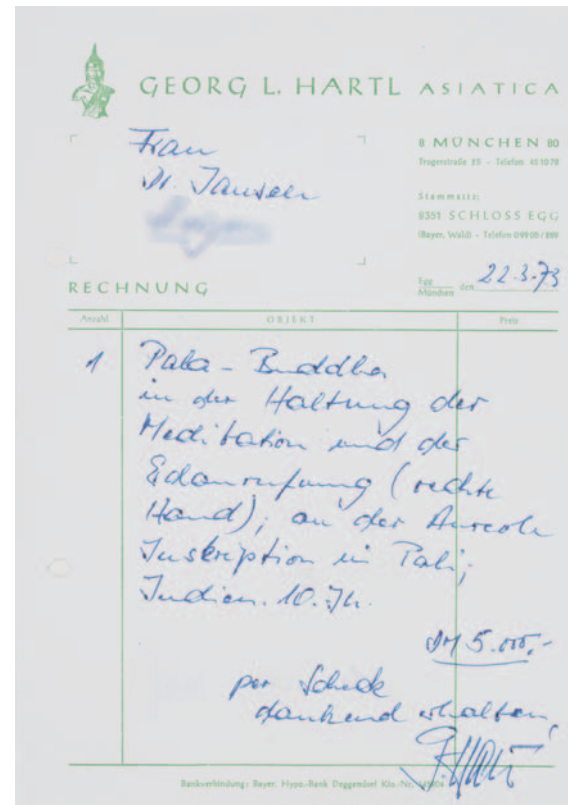 GEORG L. HARTL ASIATICA
Frau
Dr. Jansen
8 MÜNCHEN 80
Trogerstraße 35 - Telefon
Stammsitz:
8351 SCHLOSS EGG
(Bayer. Wald) - Telefon 09905/
RECHNUNG
Egg
München den 22.3.73
Anzahl OBJEKT Preis
1 Pala-Buddha
in der Haltung der
Meditation und der
Erdanrufung (rechte
Hand); an der Aureole
Inskription in Pali;
Indien. 10. Jh.
DM 5.000,-
per Scheck
dankend erhalten,
Bankverbindung: Bayer. Hypo.-Bank Deggendorf Kto.-Nr.